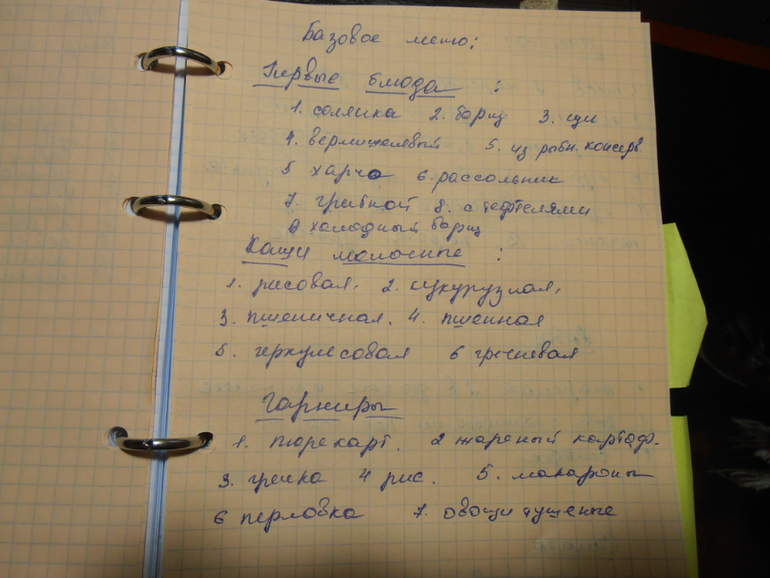 Базовое меню:
Первые блюда :
1. солянка 2. борщ 3. щи
4. вермишелевый 5. из рыбн. консерв
5 харчо 6. рассольник
7. грибной 8. с тефтелями
9 холодный борщ
Каши молочные :
1. рисовая. 2. кукурузная.
3. пшеничная. 4. пшенная
5. геркулесовая 6 гречневая
Гарниры
1. пюре карт. 2 жареный картоф.
3. гречка 4 рис. 5. макароны
6 перловка 7. овощи тушеные